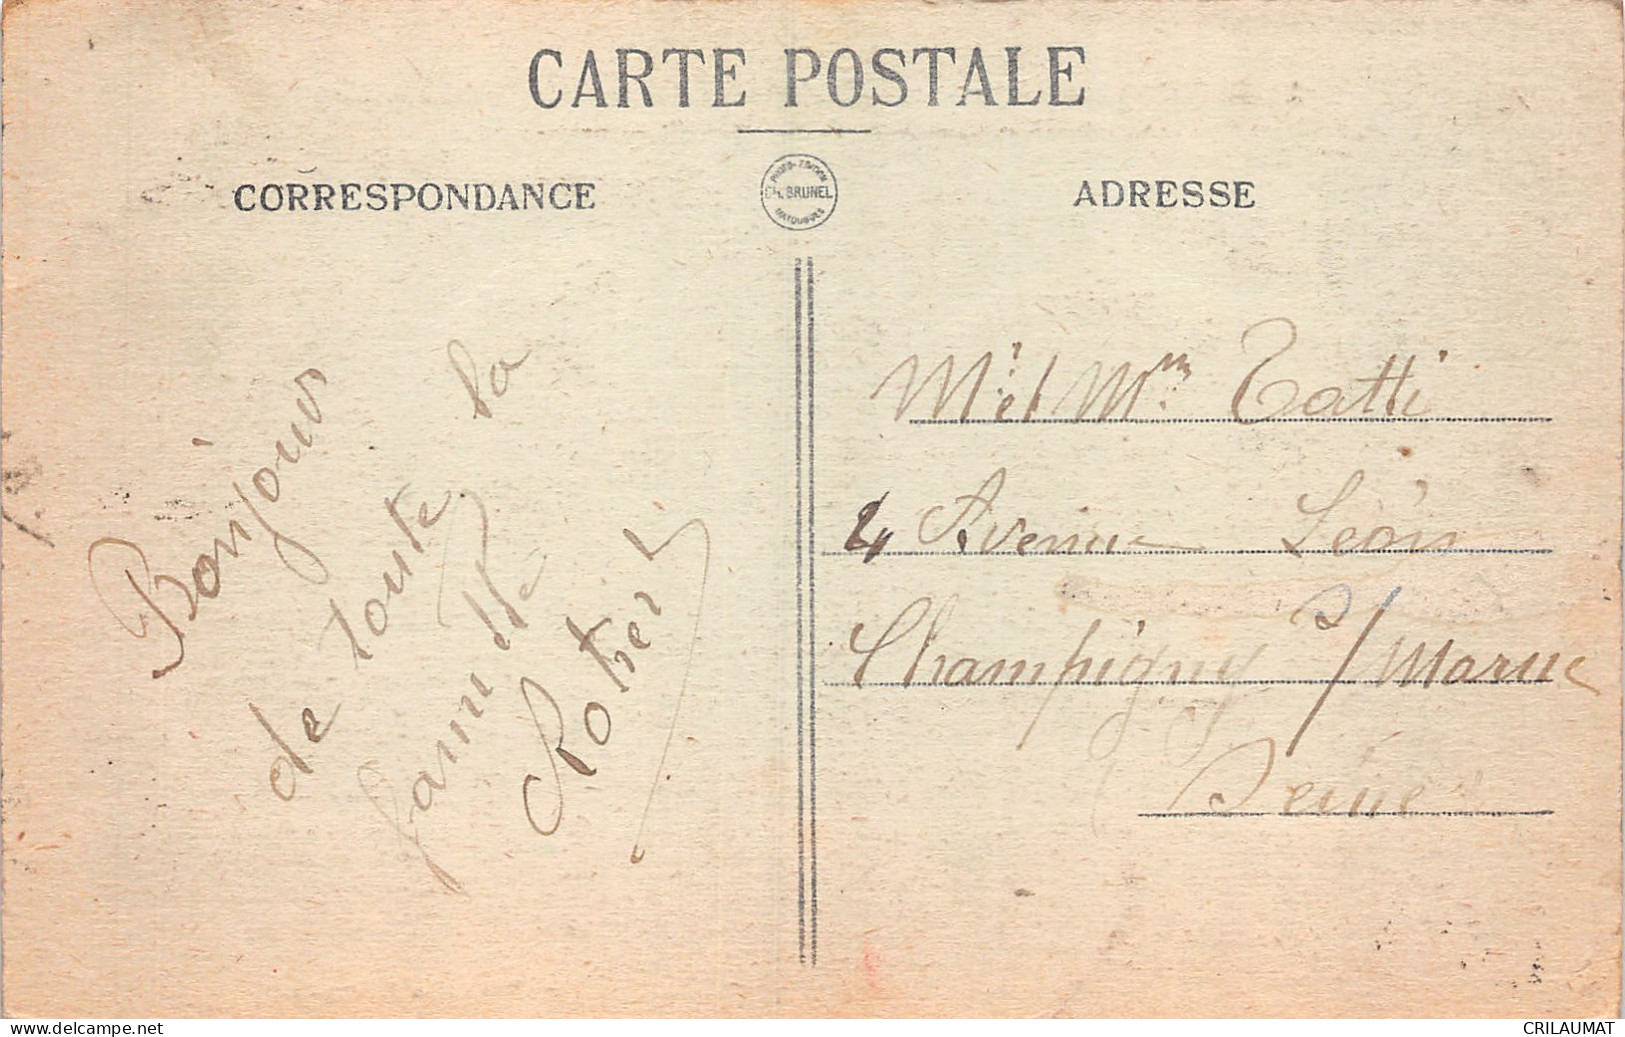 CARTE POSTALE
CORRESPONDANCE
PHOTO-EDITION
CH. BRUNEL
MATOUGUES
ADRESSE
Bonjour
de toute la
famille
Rotier
Mr et Mme Tatti
4 Avenue Léon
Champigny s/ Marne
Seine
www.delcampe.net
CRILAUMAT